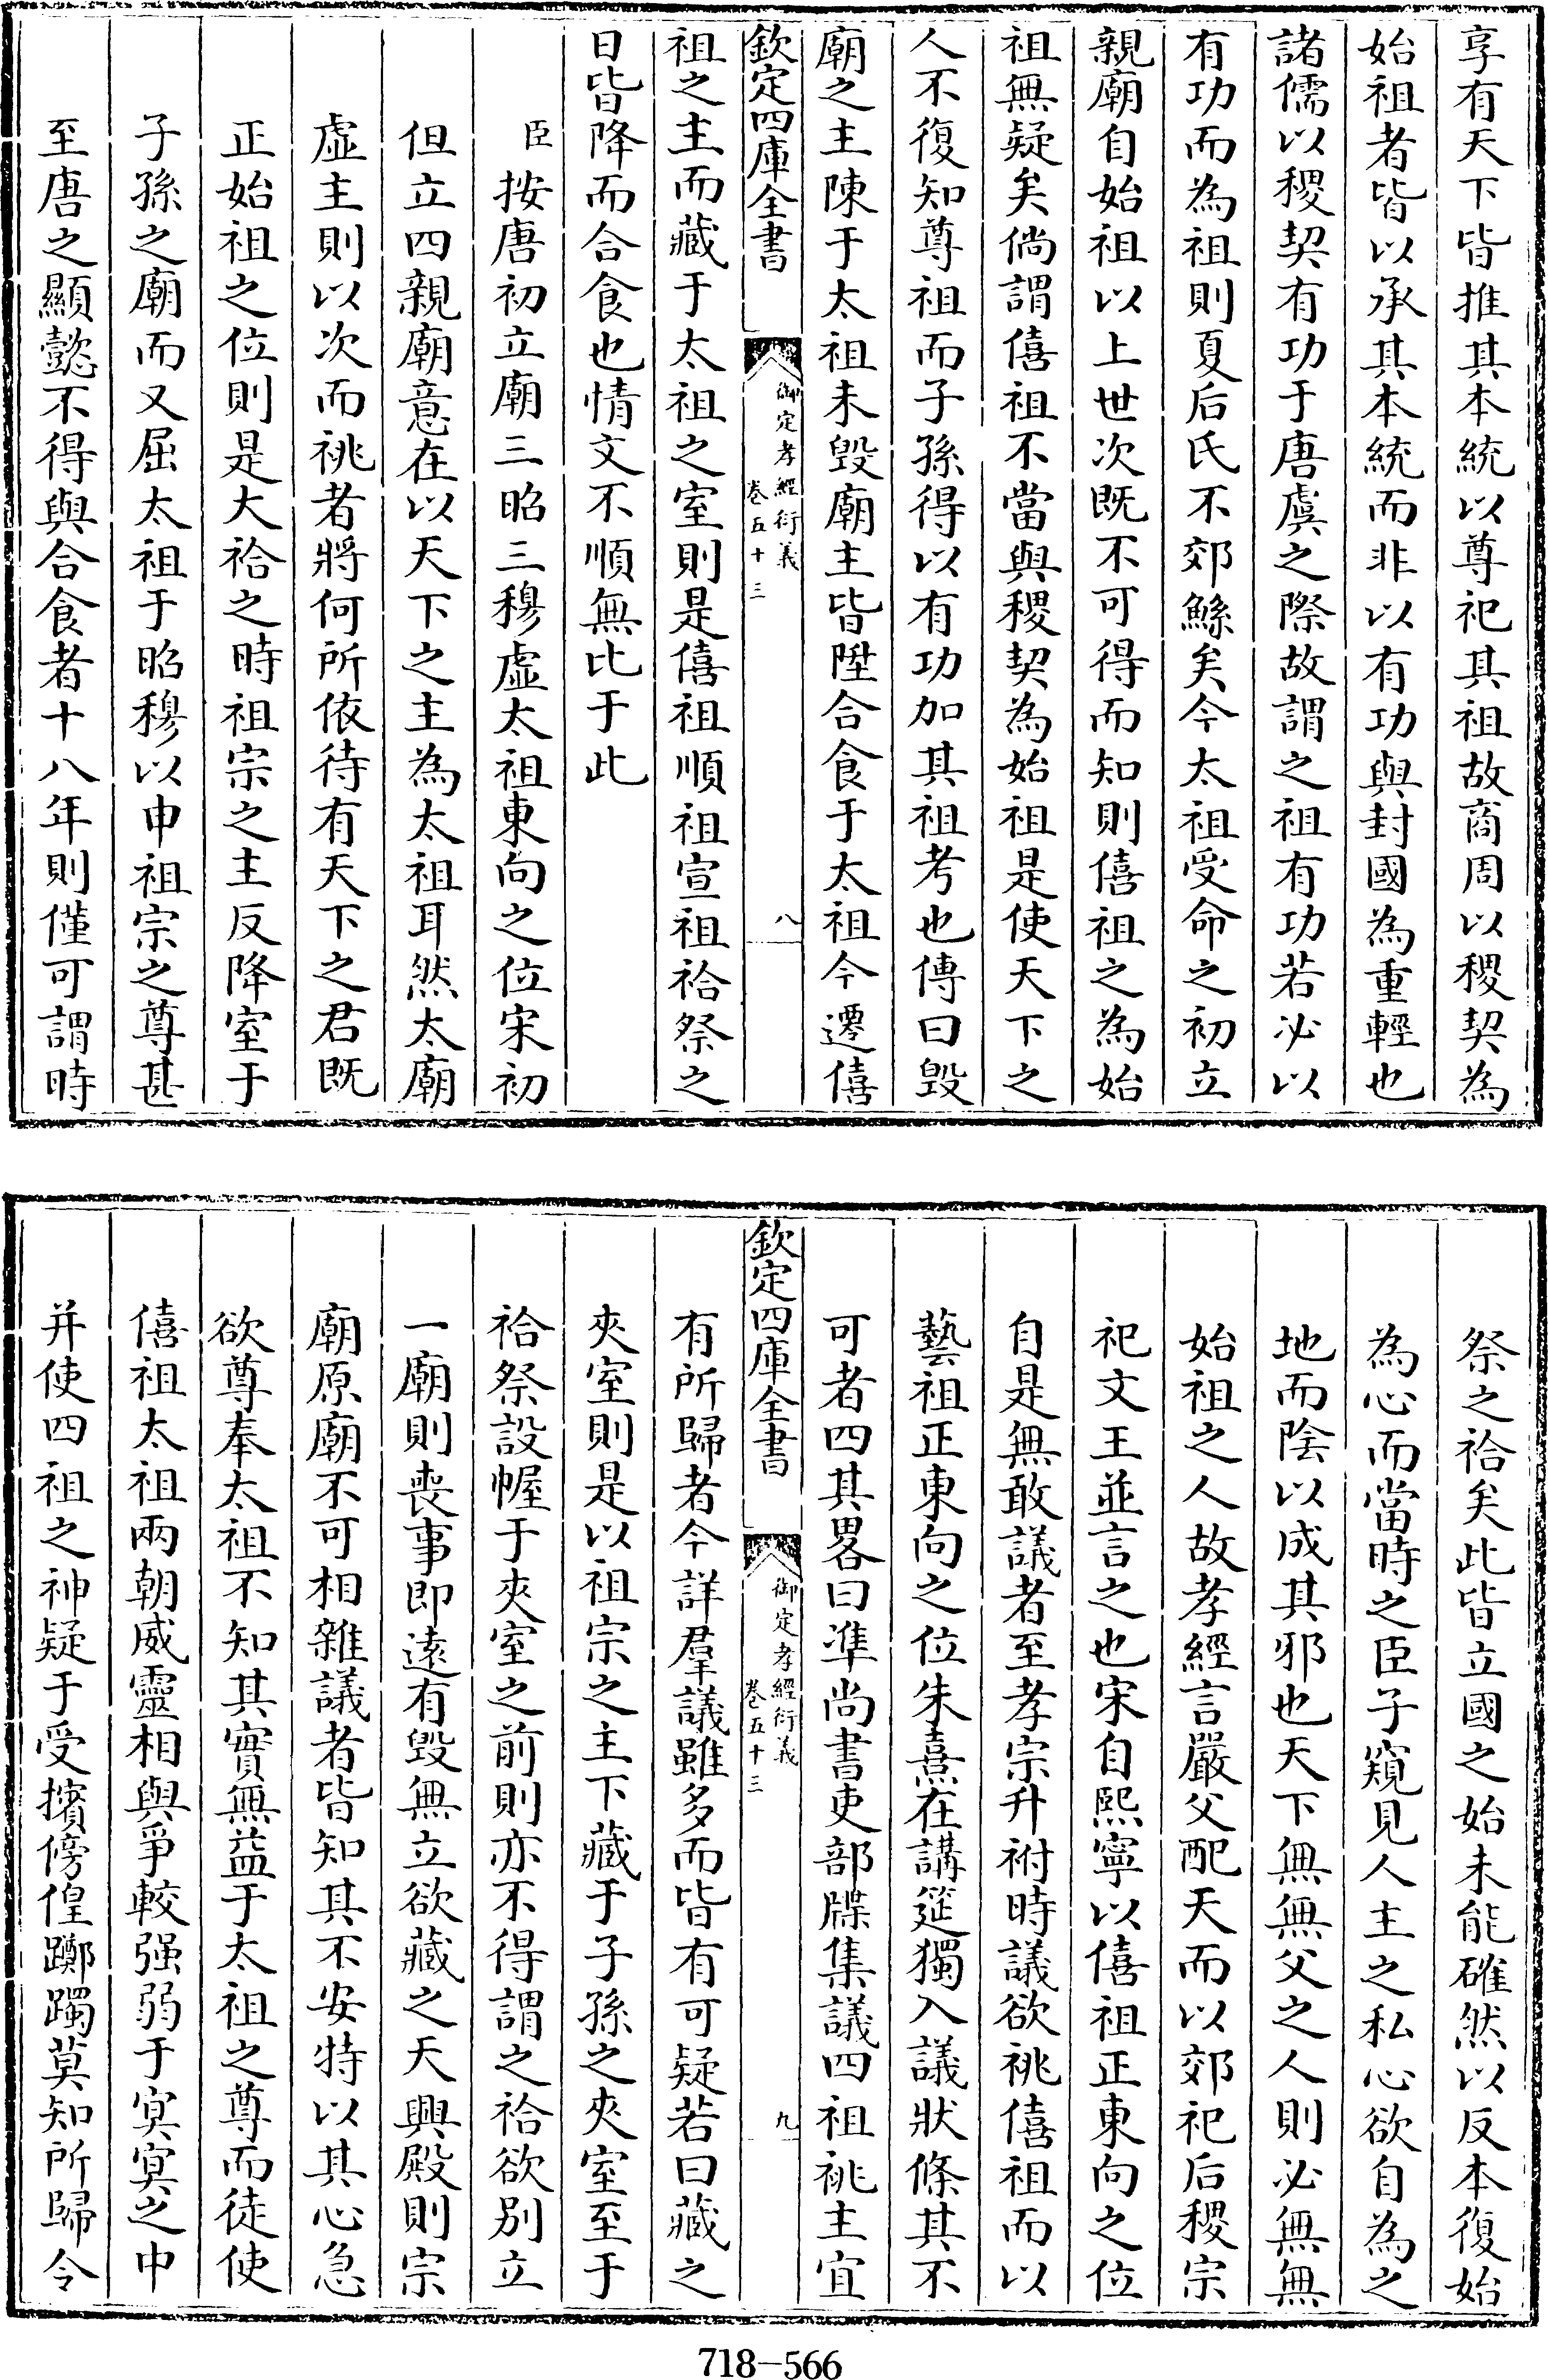 享有天下皆推其本統以尊祀其祖故商周以稷契為
始祖者皆以承其本統而非以有功與封國為重輕也
諸儒以稷契有功于唐虞之際故謂之祖有功若必以
有功而為祖則夏后氏不郊鯀矣今太祖受命之初立
親廟自始祖以上世次既不可得而知則僖祖之為始
祖無疑矣倘謂僖祖不當與稷契為始祖是使天下之
人不復知尊祖而子孫得以有功加其祖考也傳曰毀
廟之主陳于太祖未毀廟主皆陞合食于太祖今遷僖
欽定四庫全書
御定孝經衍義
卷五十三
八
祖之主而藏于太祖之室則是僖祖順祖宣祖祫祭之
日皆降而合食也情文不順無比于此
臣按唐初立廟三昭三穆虛太祖東向之位宋初
但立四親廟意在以天下之主為太祖耳然太廟
虛主則以次而祧者將何所依待有天下之君既
正始祖之位則是大祫之時祖宗之主反降室于
子孫之廟而又屈太祖于昭穆以申祖宗之尊甚
至唐之顯懿不得與合食者十八年則僅可謂時
祭之祫矣此皆立國之始未能確然以反本復始
為心而當時之臣子窺見人主之私心欲自為之
地而陰以成其邪也天下無無父之人則必無無
始祖之人故孝經言嚴父配天而以郊祀后稷宗
祀文王並言之也宋自熙寧以僖祖正東向之位
自是無敢議者至孝宗升祔時議欲祧僖祖而以
藝祖正東向之位朱熹在講筵獨入議狀條其不
可者四其畧曰準尚書吏部牒集議四祖祧主宜
欽定四庫全書
御定孝經衍義
卷五十三
九
有所歸者今詳羣議雖多而皆有可疑若曰藏之
夾室則是以祖宗之主下藏于子孫之夾室至于
祫祭設幄于夾室之前則亦不得謂之祫欲别立
一廟則喪事即遠有毀無立欲藏之天興殿則宗
廟原廟不可相雜議者皆知其不安特以其心急
欲尊奉太祖不知其實無益于太祖之尊而徒使
僖祖太祖兩朝威靈相與爭較强弱于冥冥之中
并使四祖之神疑于受擯傍偟躑躅莫知所歸令
718-566